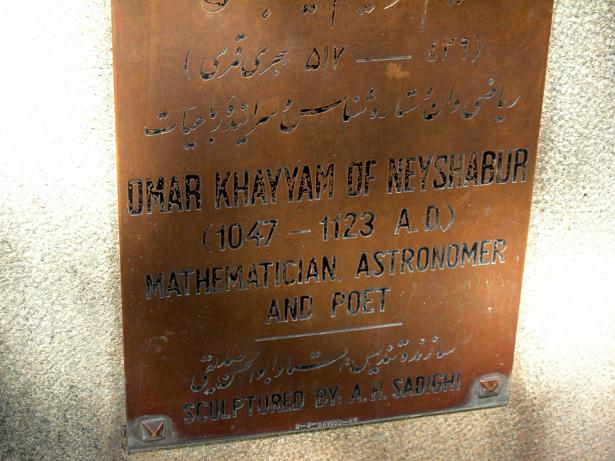 (۴۳۹ —— ۵۱۷ هجری قمری)
ریاضی دان و ستاره شناس و سراینده رباعیات
OMAR KHAYYAM OF NEYSHABUR
(1047 - 1123 A.D.)
MATHEMATICIAN, ASTRONOMER
AND POET
سازنده تندیس: استاد ابوالحسن صدیقی
SCULPTURED BY: A.H. SADIGHI